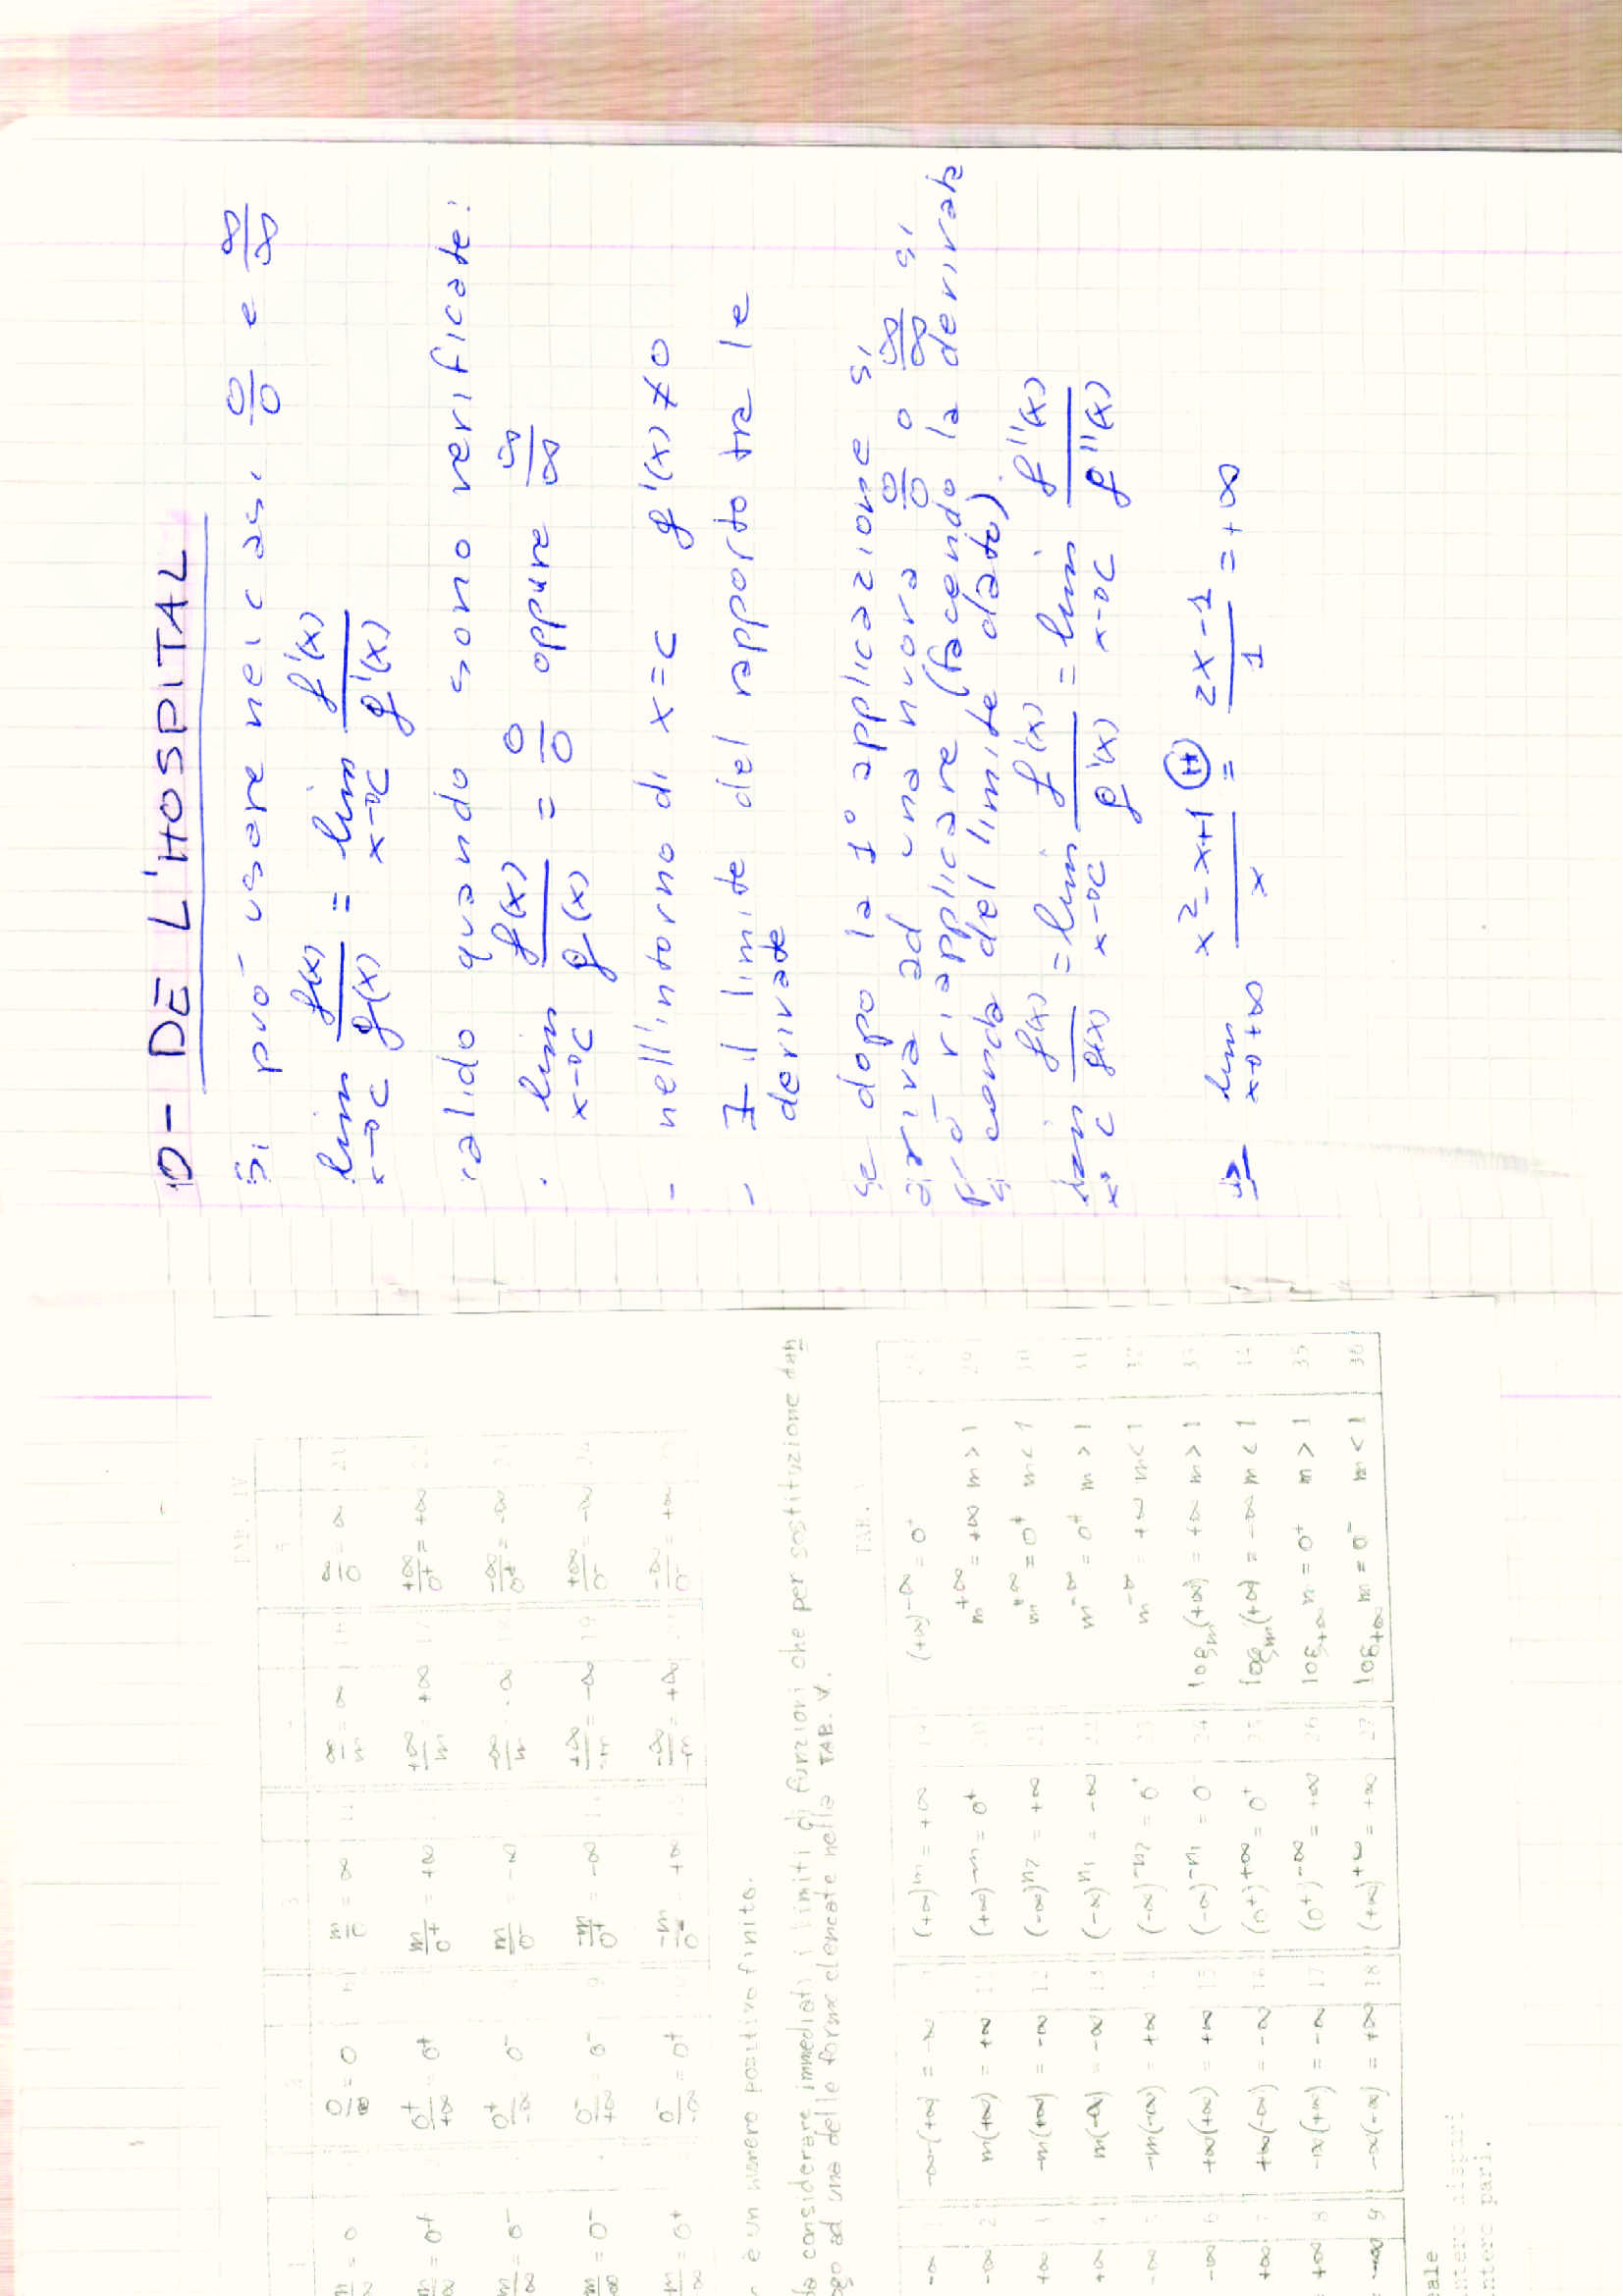 10 - DE L'HOSPITAL
Si può usare nei casi 0/0 e ∞/∞
lim x→c f(x)/g(x) = lim x→c f'(x)/g'(x)
valido quando sono verificate:
· lim x→c f(x)/g(x) = 0/0 oppure ∞/∞
- nell'intorno di x=c g'(x)≠0
- ∃ il limite del rapporto tra le
derivate
se dopo la 1° applicazione si
arriva ad una nuova 0/0 o ∞/∞ si
può riapplicare (facendo la derivata
seconda del limite dato).
lim x→c f(x)/g(x) = lim x→c f'(x)/g'(x) = lim x→c f''(x)/g''(x)
es lim x→+∞ (x²-x+1)/x (H)= (2x-1)/1 = +∞
TAB. IV
m/∞ = 0 0/∞ = 0 m/0 = ∞ ∞/m = ∞ ∞/0 = ∞
m/+∞ = 0⁺ 0⁺/+∞ = 0⁺ m/0⁺ = +∞ +∞/m = +∞ +∞/0⁺ = +∞
0⁻ 0⁺/-∞ = 0⁻ m/0⁻ = -∞ -∞/m = -∞ -∞/0⁺ = -∞
0⁻ 0⁻/+∞ = 0⁻ -m/0⁺ = -∞ +∞/-m = -∞ +∞/0⁻ = -∞
0⁺ 0⁻/-∞ = 0⁺ -m/0⁻ = +∞ -∞/-m = +∞ -∞/0⁻ = +∞
è un numero positivo finito.
da considerare immediati i limiti di funzioni che per sostituzione dan
ogo ad una delle forme elencate nella TAB. V.
TAB.
-∞ 1 -∞(+∞) = -∞ (+∞)ᵐ = +∞ 19 (+∞)^-∞ = 0⁺
-∞ 2 m(+∞) = +∞ 11 (+∞)^-m = 0⁺ 20 m^+∞ = +∞ m > 1 29
+∞ 3 -m(+∞) = -∞ 12 (-∞)^n₂ = +∞ 21 m^+∞ = 0⁺ m < 1 30
+∞ 4 m(-∞) = -∞ 13 (-∞)^n₁ = -∞ 22 m^-∞ = 0⁺ m > 1 31
-∞ 5 -m(-∞) = +∞ 14 (-∞)^-n₂ = 0⁺ 23 m^-∞ = +∞ m < 1 32
-∞ 6 +∞(+∞) = +∞ 15 (-∞)^-n₁ = 0⁻ 24 logₘ(+∞) = +∞ m > 1 33
+∞ 7 +∞(-∞) = -∞ 16 (0⁺)^+∞ = 0⁺ 25 logₘ(+∞) = -∞ m < 1 34
+∞ 8 -∞(+∞) = -∞ 17 (0⁺)^-∞ = +∞ 26 log₊∞ m = 0⁺ m > 1 35
-∞ 9 -∞(-∞) = +∞ 18 (+∞)^+∞ = +∞ 27 log₊∞ m = 0⁻ m < 1 36
eale
intero dispari
intero pari.